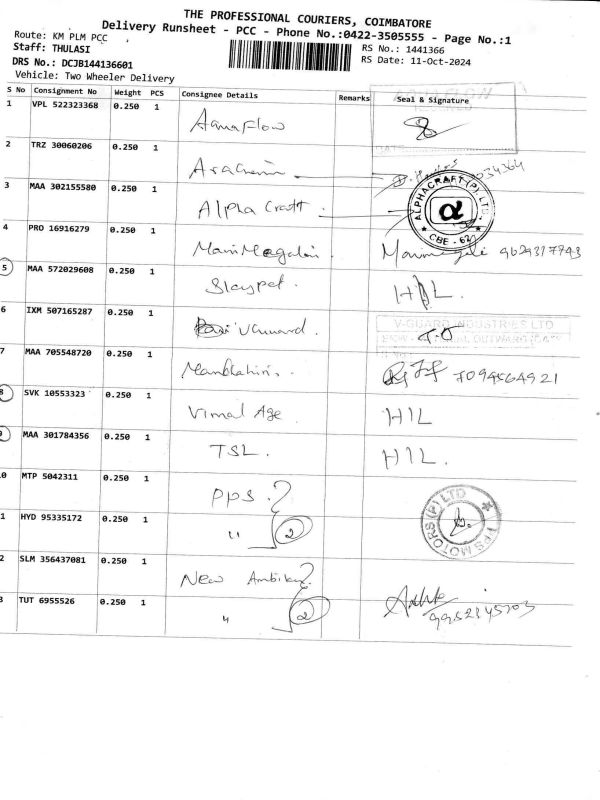 THE PROFESSIONAL COURIERS, COIMBATORE
Delivery Runsheet - PCC - Phone No.:0422-3505555 - Page No.:1
Route: KM PLM PCC
Staff: THULASI
DRS No.: DCJB144136601
Vehicle: Two Wheeler Delivery
RS No.: 1441366
RS Date: 11-Oct-2024
S No Consignment No Weight PCS Consignee Details Remarks Seal & Signature
1 VPL 522323368 0.250 1 AquaFlow
2 TRZ 30060206 0.250 1
3 MAA 302155580 0.250 1 Alpha Craft.
ALPHACRAFT (P) LTD. α CBE - 621
4 PRO 16916279 0.250 1 9629317743
5 MAA 572029608 0.250 1 HIL.
6 IXM 507165287 0.250 1 V Guard.
V-GUARD INDUSTRIES LTD
7 MAA 705548720 0.250 1 7094564921
8 SVK 10553323 0.250 1 Vimal Age HIL
9 MAA 301784356 0.250 1 TSL. HIL.
0 MTP 5042311 0.250 1 PPS.
PPS MOTORS (P) LTD
1 HYD 95335172 0.250 1 " 2
2 SLM 356437081 0.250 1 New Ambika
3 TUT 6955526 0.250 1 " 2